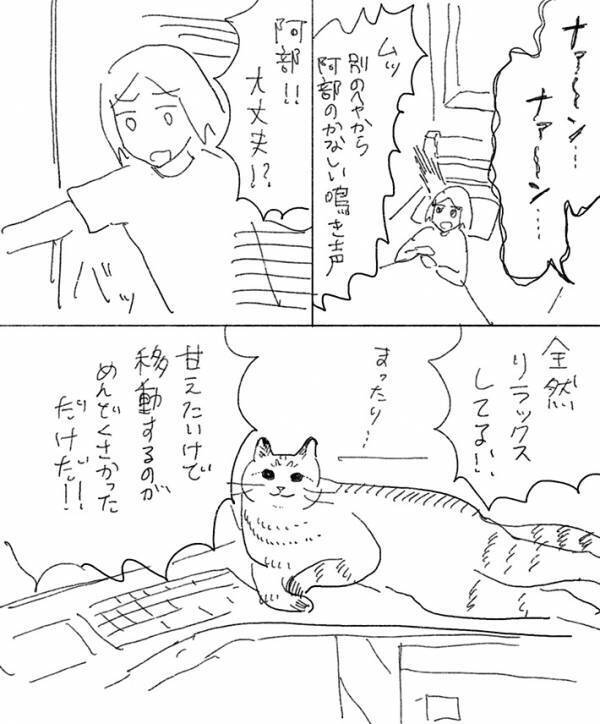 ナァ～ン…
ナァ～ン…
ムッ
別のへやから
阿部のかなしい鳴き声
阿部!!
大丈夫!?
バッ
全然
リラックス
してる!!
まったり…
甘えたいけど
移動するのが
めんどくさかった
だけだ!!